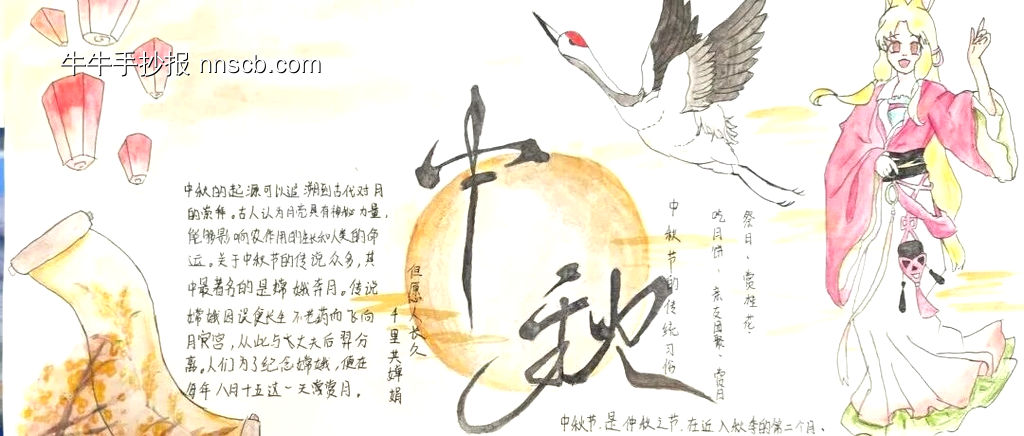 牛牛手抄报 nnscb.com
中秋的起源可以追溯到古代对月
的崇拜。古人认为月亮具有神秘力量,
能够影响农作物的生长和人类的命
运。关于中秋节的传说众多,其
中最著名的是嫦娥奔月。传说
嫦娥因误食长生不老药而飞向
月宫,从此与丈夫后羿分
离。人们为了纪念嫦娥,便在
每年八月十五这一天赏月。
但愿人长久
千里共婵娟
中秋
中秋节的传统习俗
祭月、赏桂花、
吃月饼、亲友团聚、赏月
中秋节,是仲秋之节,在近入秋季的第二个月、